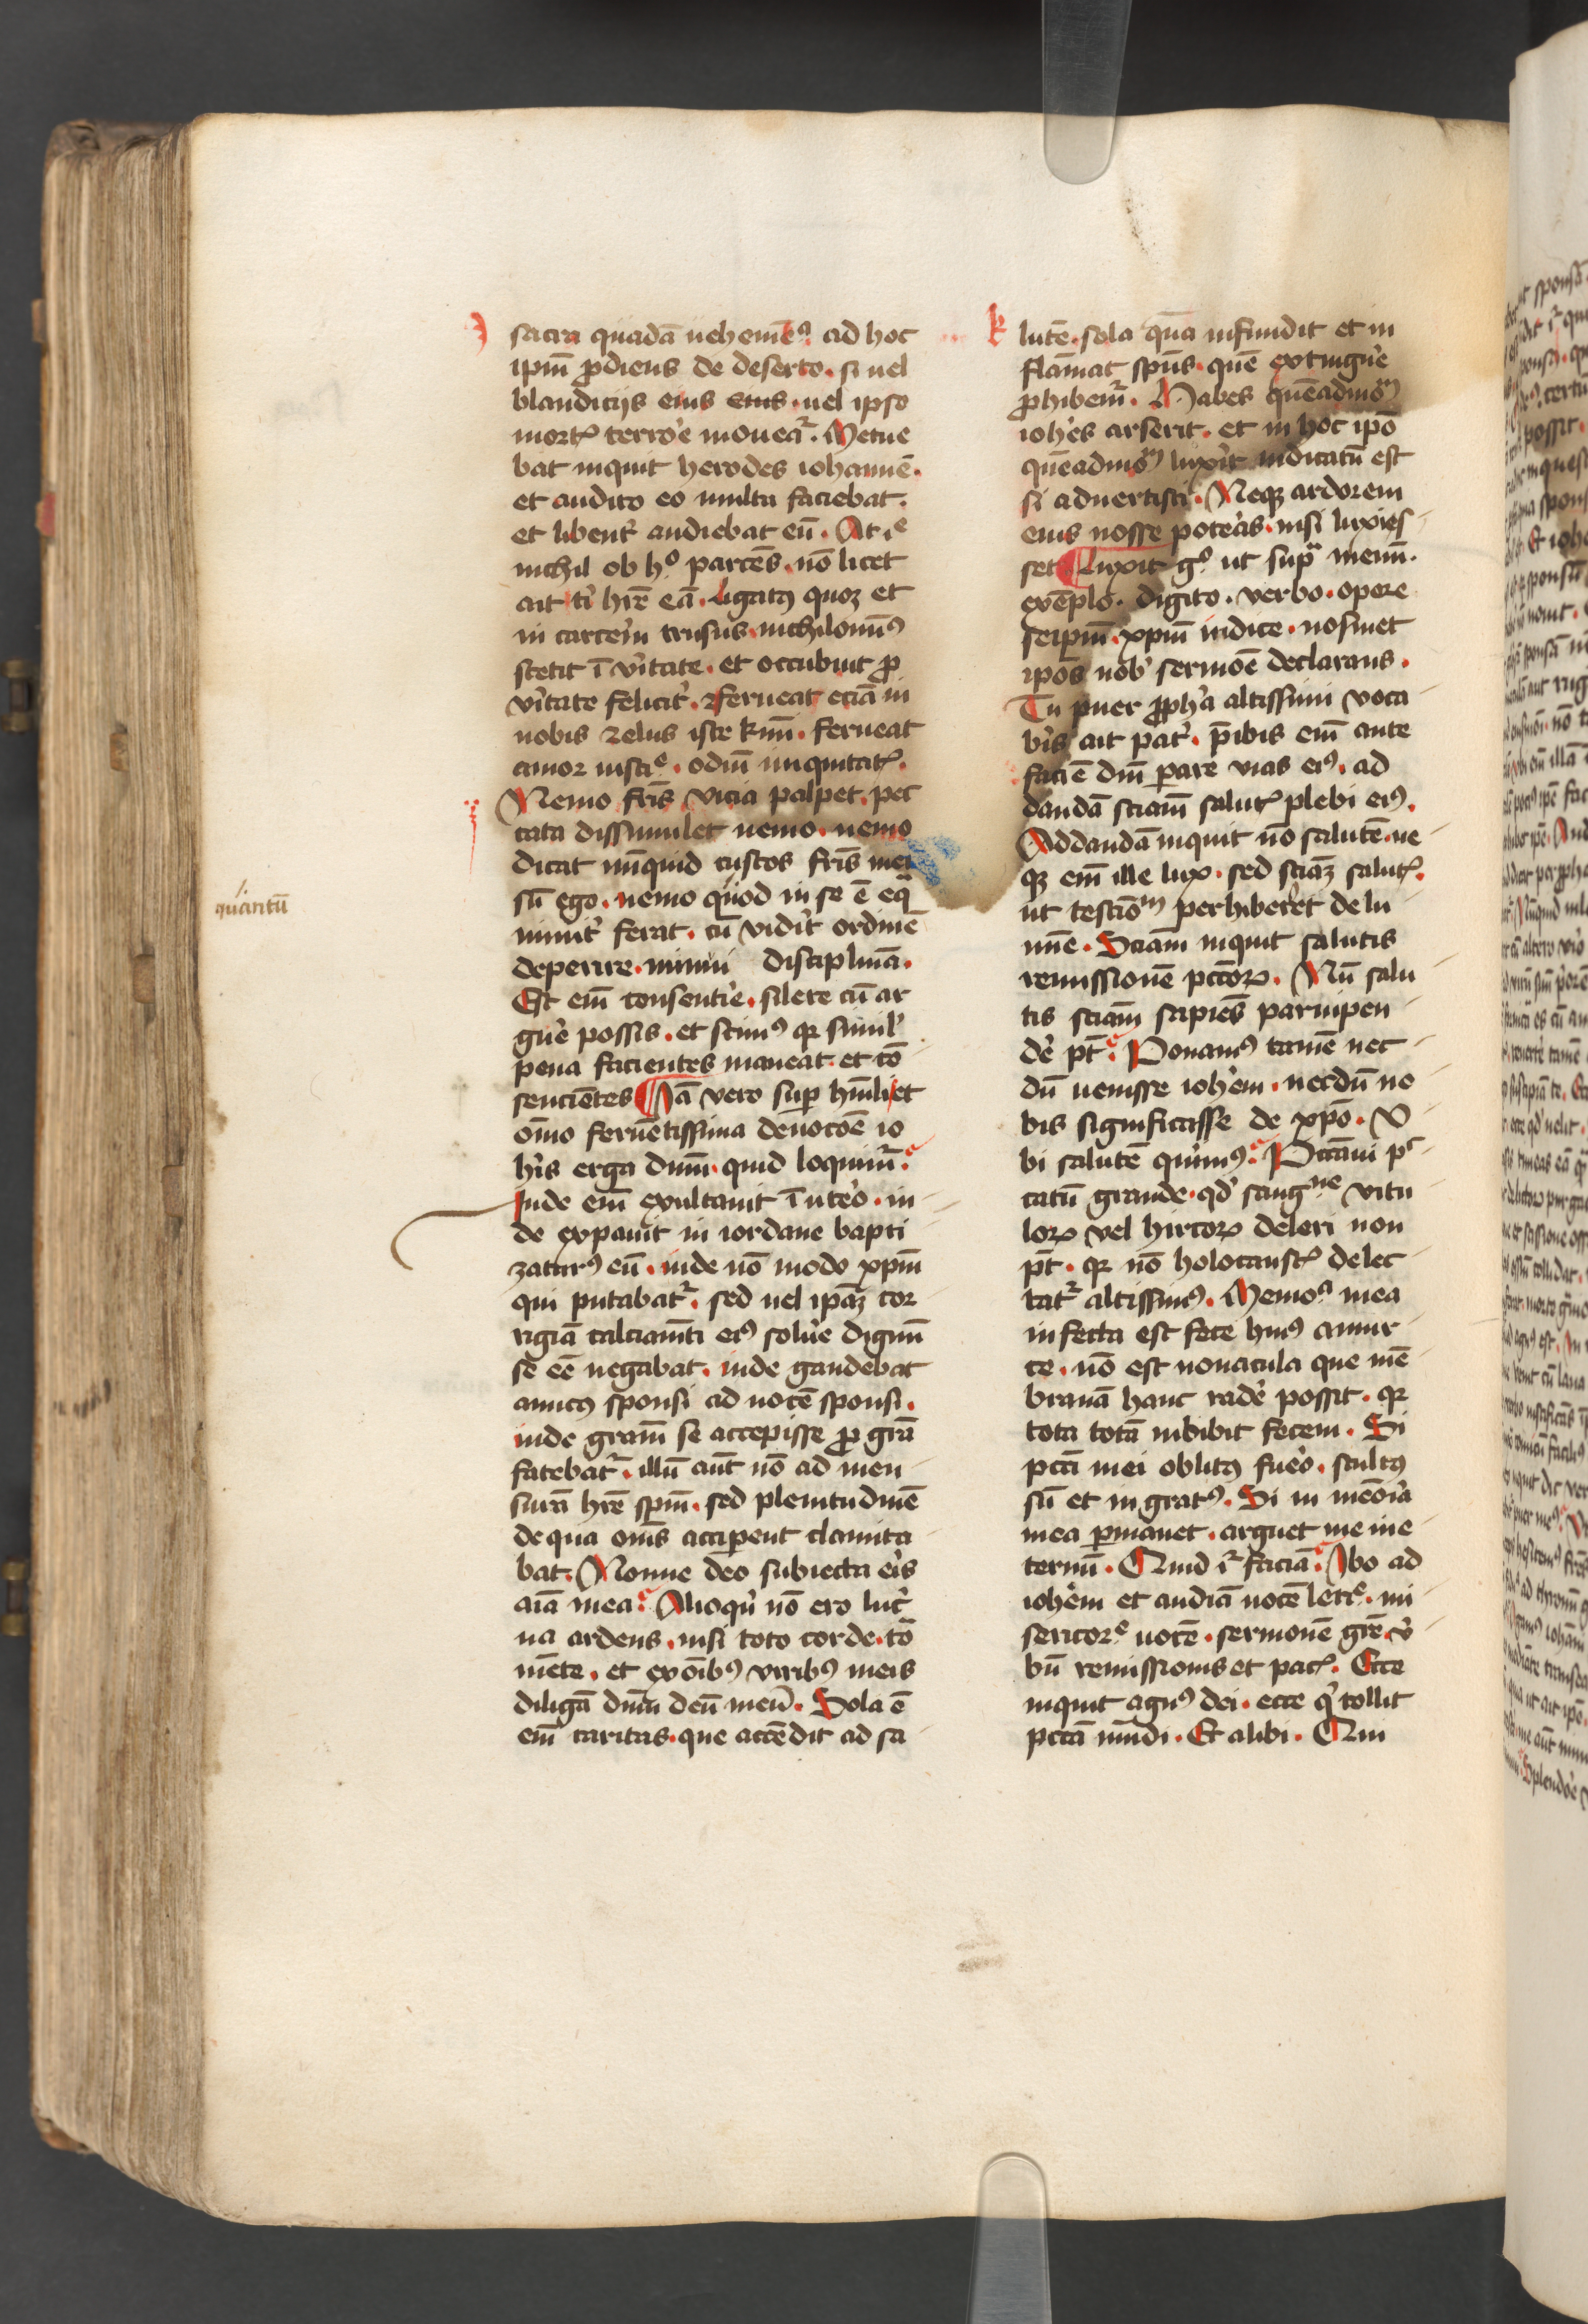 sacra quadā uehemēs ad hoc
ipm̄ ꝓdiens de deserto. si uel
blandicijs eius eius. uel ipso
mortꝭ terrore mouear̄. Metue
bat inquit herodes iohannē.
et audito eo multa faciebat.
et libent᷑ audiebat eū. At ie
nichil ob ho parcēs. nō licet
ait ti hr̄e eā. Ligatꝰ quoqꝫ et
in carcerē trusus. nichilominꝰ
stetit ī v̓itate. et occubuit ꝓ
v̓itate felicit᷑. ferueat eciā in
nobis zelus iste kmī. ferueat
amor iusticie. odiū iniquitatꝭ.
Nemo fr̄s vicia palpet. pec
cata dissimulet nemo. nemo
dicat nūquid custos fr̄is mei
quantū
sū ego. nemo quod in se ē eqa
nimit᷑ ferat. cū vidit᷑ ordinē
deperire. minui disciplinā.
Est em̄ consentire. silere cū ar
guere possis. et scimꝰ qꝛ simil᷑
pena facientes maneat et cō
sencientes Iā vero suꝑ hūili et
om̄o feruētissima deuocōe io
his erga dnm̄. quid loquimur̄.
Inde em̄ exultauit ī utero. in
de expauit in iordane bapti
zaturꝰ eū. inde nō modo xpm̄
qui putabat᷑. sed uel ipaꝫ cor
rigiā calciamēti eiꝰ soluere dignū
se eē negabat. inde gaudebat
amicꝰ sponsi ad uocē sponsi.
inde gr̄am se accepisse ꝓ gr̄a
fatebat᷑. illū aut̄ nō ad men
surā hr̄e spm̄. sed plenitudinē
de qua om̄s acciꝑent clamita
bat. Nonne deo subiecta erit
aīa mea. Alioqui nō ero luc̓
na ardens. nisi toto corde. to
mēte. et ex oībꝰ viribꝰ meis
diligā dnm̄ deū meū. Sola ē
em̄ caritas. que accēdit ad sa
k lutē. sola quā infundit et in
flāmat spūs. quē extinguere
ꝓhibem̄. Habes quēadmom
ioh̓es arserit. et in hoc ipō
quēadmom luxit indicatū est
si aduertisti. Neqꝫ ardorem
eius nosse poteras. nisi luxis
set Luxit go ut supra memi.
exēplo. digito. verbo. opere
seipm̄. xpm̄ indice. nosmet
ipos nob̓ sermoē declarans.
Tu puer ꝓph̓a altissimi voca
b̓is ait pat᷑. p̄ibis em̄ ante
faciē dm̄ parare vias eiꝰ. ad
dandā sciam salutꝭ plebi eiꝰ.
Ad dandā inquit nō salutē. ne
qꝫ em̄ ille lux. sed sciaꝫ salutꝭ.
ut testiōm perhiberet de lu
mīe. Sciam inquit salutis
remissionē pctoꝝ. Nū salu
tis sciam sapiēs paruipen
dere pt̄. Ponamꝰ tamē nec
dū uenisse ioh̓em. necdū no
bis significasse de xpo. V
bi salutē querimꝰ. Peccaui pec
catū grande. qd̓ sanguine vitu
loꝝ vel hircoꝝ deleri non
pt̄. qꝛ nō holocaustꝭ delec
tat᷑ altissimꝰ. Memoria mea
infecta est fece huiꝰ amur
ce. nō est nouacula que mē
branā hanc radere possit. qꝛ
tota totā imbibit fecem. Si
pcti mei oblitꝰ fuero. stultꝰ
sū et ingratꝰ. Si in meōria
mea ꝑmanet. arguet me in e
ternū. Quid i᷑ faciā. Ibo ad
ioh̓em et audiā uocē leticie. mi
sericordie uocē. sermonē gr̄e. v̓
bū remissionis et pacꝭ. Ecce
inquit agnꝰ dei. ecce qi tollit
pctā mūdi. Et alibi. Qui